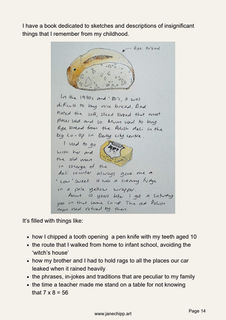 I have a book dedicated to sketches and descriptions of insignificant
things that I remember from my childhood.
Rye bread
In the 1970s and '80s, it was
difficult to buy nice bread. Dad
hated the soft, sliced bread that most
places sold and so Mum used to buy
Rye bread from the Polish deli in the
big Co-op in Derby city centre.
I used to go
with her and
the old man
in charge of the
deli counter always gave me a
'cow' sweet. It was a creamy fudge
in a pale yellow wrapper.
About 10 years later I got a Saturday
job in that same Co-op. The old Polish
man had retired by then.
It's filled with things like:
how I chipped a tooth opening a pen knife with my teeth aged 10
the route that I walked from home to infant school, avoiding the
'witch's house'
how my brother and I had to hold rags to all the places our car
leaked when it rained heavily
the phrases, in-jokes and traditions that are peculiar to my family
the time a teacher made me stand on a table for not knowing
that 7 x 8 = 56
Page 14
www.janechipp.art